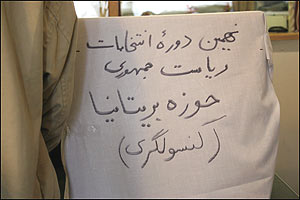 نهمین دورهٔ انتخابات
ریاست جمهوری
حوزه بریتانیا
(کنسولگری)